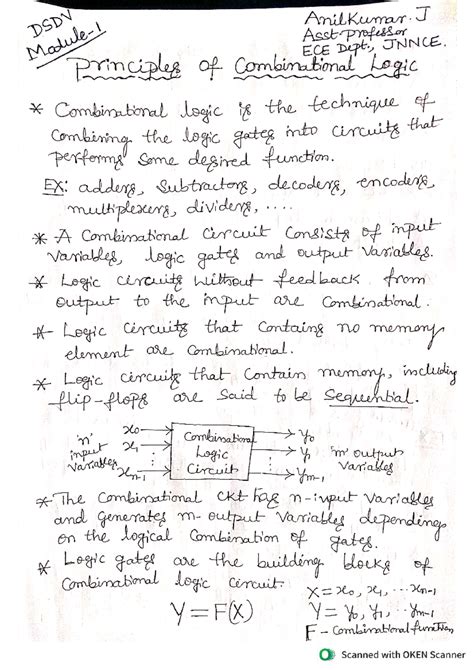 DSDV
Module-1
Anilkumar. J
Asst. professor
ECE Dept., JNNCE.
Principles of Combinational Logic
* Combinational logic is the technique of
Combining the logic gates into circuits that
performs some desired function.
EX: adders, Subtractors, decoders, encoders,
multiplexers, dividers, ....
* A Combinational Circuit Consists of input
variables, logic gates and output variables.
* Logic circuits without feedback from
output to the input are Combinational.
* Logic circuits that contains no memory
element are Combinational.
* Logic circuits that Contain memory, including
flip-flops are said to be Sequential.
'n' input variables
x0
x1
xn-1
Combinational
Logic
Circuit
y0
y1
ym-1
'm' output
variables
* The Combinational Ckt has n-input variables
and Generates m-output variables depending
on the logical Combination of gates.
* Logic gates are the building blocks of
Combinational logic circuit.
X = x0, x1, ... xn-1
Y = F(X)
Y = y0, y1, ... ym-1
F - Combinational function
Scanned with OKEN Scanner